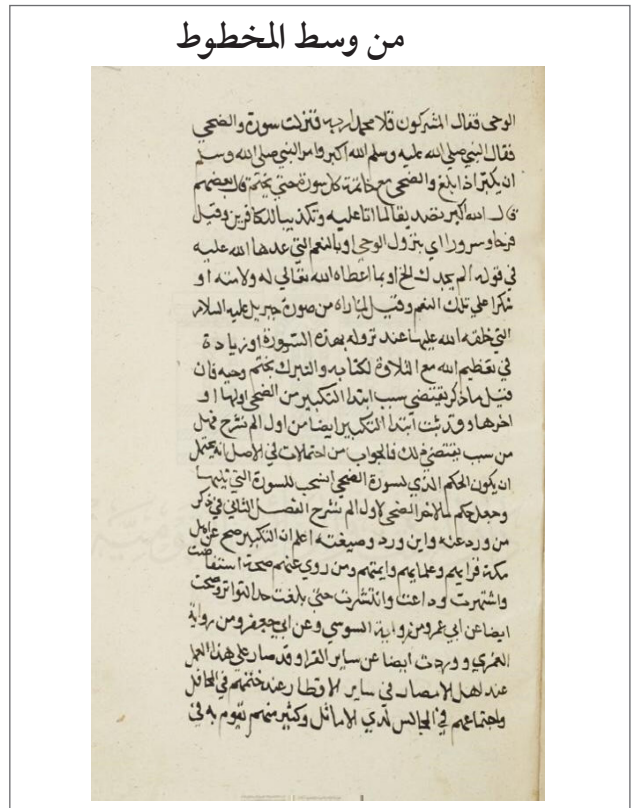 من وسط المخطوط
الوحى فقال المشركون قلا محمدا ربه فنزلت سورة والضحى
فقال النبي صلى الله عليه وسلم الله اكبر وامر النبي صلى الله وسلم
ان يكبر اذا بلغ والضحى مع خاتمة كل سورة حتى يختم قال بعضهم
قال الله اكبر تصديقا لما اتا عليه وتكذيبا للكافرين وقيل
فرحا وسرورا اي بنزول الوحي او بالنعم التي عدها الله عليه
في قوله الم يجدك الخ او بما اعطاه الله تعالى له ولامته او
شكرا علي تلك النعم وقيل لما راه من صورة جبريل عليه السلام
التي خلقه الله عليها عند نزوله بهذه السورة او زيادة
في تعظيم الله مع التلاوة لكتابه والتبرك بختم وحيه فان
قيل ما ذكر يقتضي سبب ابتدا التكبير من الضحى اولها او
اخرها وقد ثبت ابتدا التكبير ايضا من اول الم نشرح فهل
من سبب يقتضي ذلك فالجواب من احتملات في الاصل انه يحتمل
ان يكون الحكم الذي لسورة الضحى انسحب للسورة التي تليها
وجعل حكم ما لاخر الضحى لاول الم نشرح الفصل الثاني في ذكر
من ورد عنه واين ورد وصيغته اعلم ان التكبير صح عن اهل
مكة قرايهم وعلمايهم وايمتهم ومن روي عنهم صحة استفاضت
واشتهرت وذاعت وانتشرت حتى بلغت حد التواتر وصحت
ايضا عن ابي عمرو من رواية السوسي وعن ابي جعفر ومن رواية
العمري ووردت ايضا عن ساير القرا وقد صار علي هذا العمل
عند اهل الامصار في ساير الاقطار عند ختمهم في المحافل
واجتماعهم في المجالس لدي الاماثل وكثير منهم يقوم به في